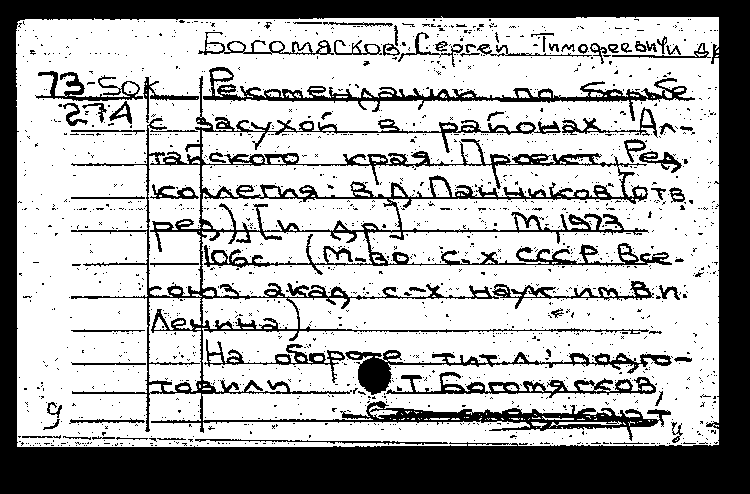 Богомясков, Сергей Тимофеевичи др
73-50к Рекомендации по борьбе
274 с засухой в районах Ал-
тайского края. Проект. Ред.
коллегия: В.Д. Панников (отв.
ред.), [и др.]. М., 1973
106с (М-во с.х СССР. Все-
союз. акад. с.-х наук им В.И.
Ленина).
На обороте тит.л.: подго-
товили .Т. Богомясков,
См след. карт